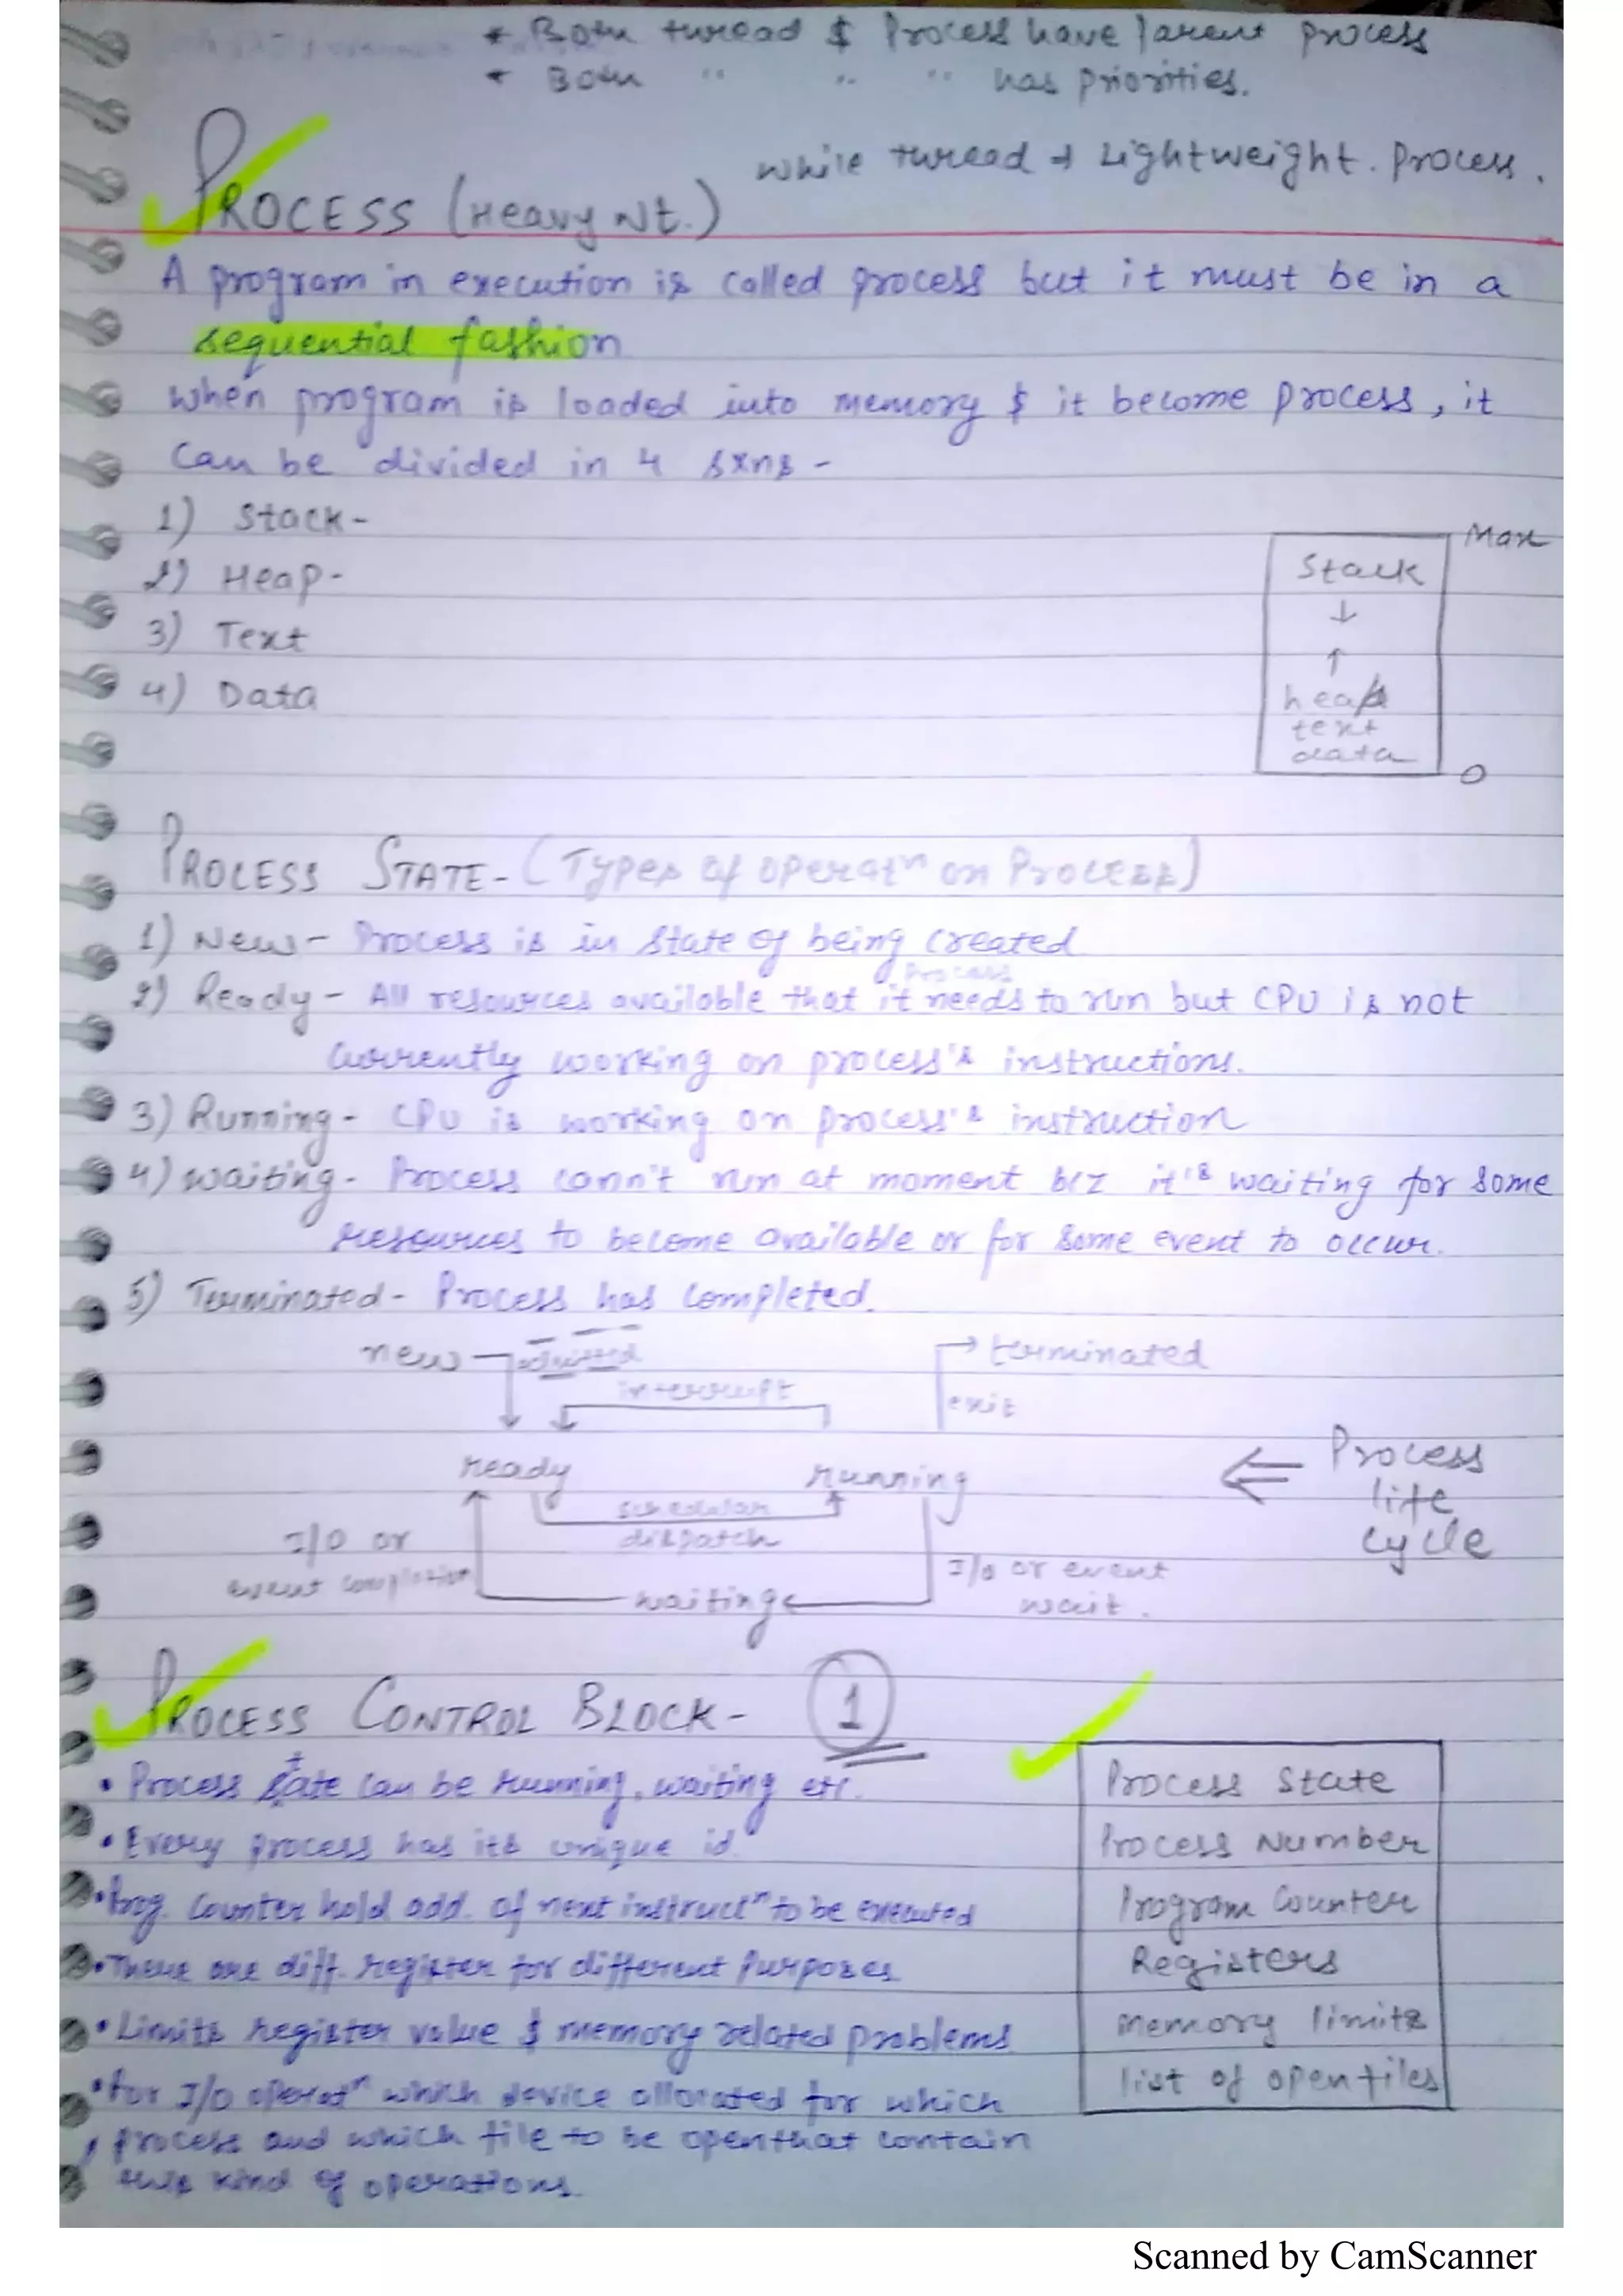 * Both thread & Process have Parent process
* Both " " " has Priorities.
while thread → Lightweight. Process.
PROCESS (Heavy Wt.)
A program in execution is called process but it must be in a
sequential fashion
When program is loaded into memory & it become process, it
can be divided in 4 sxns -
1) Stack-
2) Heap-
3) Text
4) Data
Max
Stack
↓
↑
heap
text
data
0
PROCESS STATE- (Types of operatn on Process)
1) New- Process is in state of being created
Process
2) Ready - All resources available that it needs to run but CPU is not
currently working on process's instructions.
3) Running - CPU is working on process's instruction
4) waiting - Process cann't run at moment bcz it's waiting for some
resources to become available or for some event to occur.
5) Terminated - Process has completed.
new admitted → terminated
interrupt
exit
ready running
schedular
dispatch
I/O or
event completion
waiting
I/o or event
wait.
⇐ Process
life
cycle
PROCESS CONTROL BLOCK- 1
• Process state can be running, waiting etc.
• Every process has its unique id.
• Prog. Counter hold add. of next instructn to be executed
• There are diff. register for different Purposes
• Limits register value & memory related problems
• For I/O operatn which device allocated for which
process and which file to be open that contain
this kind of operations.
Process State
Process Number
Program Counter
Registers
memory limits
list of open files
Scanned by CamScanner